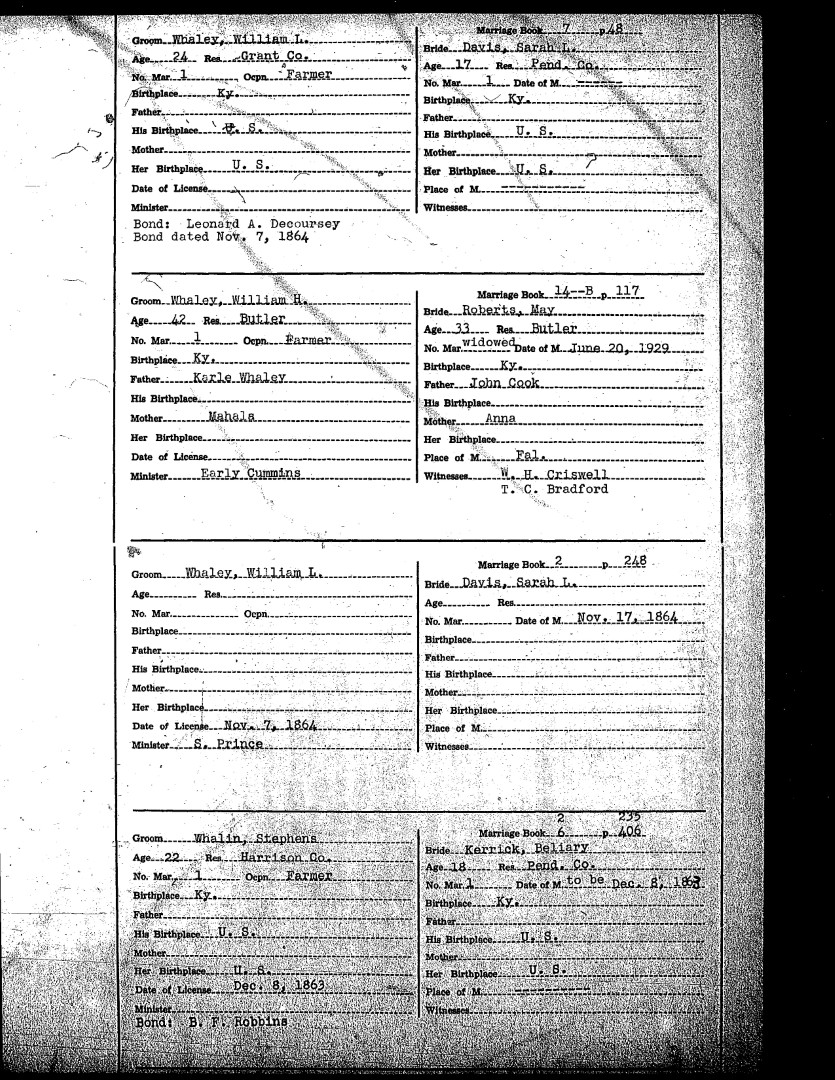 Groom Whaley, William L.
Age 24 Res. Grant Co.
No. Mar. 1 Ocpn. Farmer
Birthplace Ky.
Father
His Birthplace U. S.
Mother
Her Birthplace U. S.
Date of License
Minister
Bond: Leonard A. Decoursey
Bond dated Nov. 7, 1864
Marriage Book 7 p. 48
Bride Davis, Sarah L.
Age 17 Res. Pend. Co.
No. Mar. 1 Date of M. ------
Birthplace Ky.
Father
His Birthplace U. S.
Mother
Her Birthplace U. S.
Place of M. ------------
Witnesses
Groom Whaley, William H.
Age 42 Res. Butler
No. Mar. 1 Ocpn. Farmer
Birthplace Ky.
Father Karle Whaley
His Birthplace
Mother Mahala
Her Birthplace
Date of License
Minister Early Cummins
Marriage Book 14--B p. 117
Bride Roberts, May
Age 33 Res. Butler
No. Mar. widowed Date of M. June 20, 1929
Birthplace Ky.
Father John Cook
His Birthplace
Mother Anna
Her Birthplace
Place of M. Fal.
Witnesses W. H. Criswell
T. C. Bradford
Groom Whaley, William L.
Age Res.
No. Mar. Ocpn.
Birthplace
Father
His Birthplace
Mother
Her Birthplace
Date of License Nov. 7, 1864
Minister S. Prince
Marriage Book 2 p. 248
Bride Davis, Sarah L.
Age Res.
No. Mar. Date of M. Nov. 17, 1864
Birthplace
Father
His Birthplace
Mother
Her Birthplace
Place of M.
Witnesses
Groom Whalin, Stephens
Age 22 Res. Harrison Co.
No. Mar. 1 Ocpn. Farmer
Birthplace Ky.
Father
His Birthplace U. S.
Mother
Her Birthplace U. S.
Date of License Dec. 8, 1863
Minister
Bond: B. F. Robbins
2 235
Marriage Book 6 p. 406
Bride Kerrick, Beliary
Age 18 Res. Pend. Co.
No. Mar. 1 Date of M. to be Dec. 8, 1863
Birthplace Ky.
Father
His Birthplace U. S.
Mother
Her Birthplace U. S.
Place of M. ------------
Witnesses